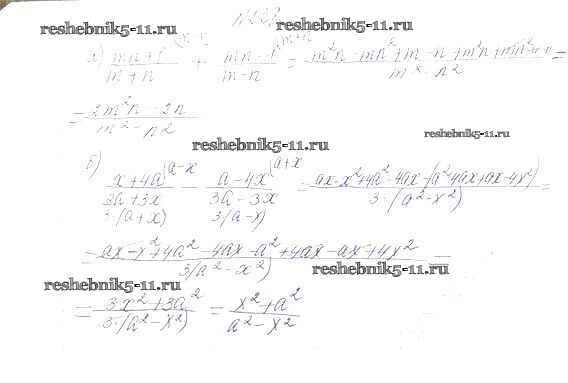 reshebnik5-11.ru reshebnik5-11.ru
а) (mn+1)/(m+n) + (mn-1)/(m-n) = (m²n - mn² + m - n + m²n + mn² - m - n)/(m² - n²) =
= (2m²n - 2n)/(m² - n²)
reshebnik5-11.ru reshebnik5-11.ru
б) (x+4a)/(3a+3x) |a-x - (a-4x)/(3a-3x) |a+x = (ax-x²+4a²-4ax-(a²-4ax+ax-4x²))/(3·(a²-x²)) =
3·(a+x) 3(a-x)
= (ax-x²+4a²-4ax-a²+4ax-ax+4x²)/(3(a²-x²)) =
reshebnik5-11.ru reshebnik5-11.ru
= (3x²+3a²)/(3·(a²-x²)) = (x²+a²)/(a²-x²)